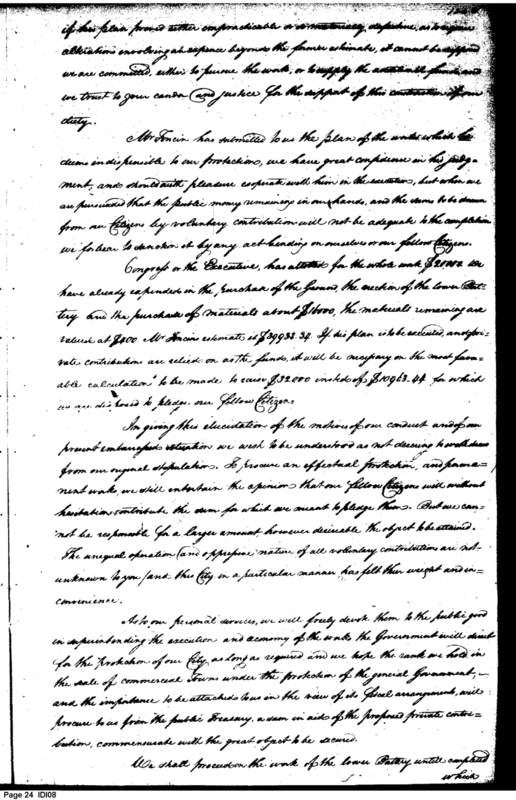 if this plan proved either impracticable or so materially defective, as to require
alterations involving an expence beyond the former estimate, it cannot be supposed
we are committed, either to pursue the work, or to supply the additional funds and
we trust to your candor and justice for the support of this construction of our
duty.
Mr Foncin has submitted to us the plan of the works which he
deems indispensible to our protection, we have great confidence in his judg-
ment, and should with pleasure cooperate with him in the execution, but when we
are persuaded that the public money remaining in our hands, and the sums to be drawn
from our Citizens by voluntary contribution will not be adequate to the completion
we forbear to sanction it by any act binding on ourselves or our fellow Citizens.
Congress or the Executive, has allotted for the whole work $20000. We
have already expended in the purchase of the Ground, the erection of the lower Bat-
tery and the purchase of materials about $16000, the materials remaining are
valued at $400. Mr Foncins estimate is $39933.34. If this plan is to be executed, and pri-
vate contributions are relied on as the funds, it will be necessary on the most favor-
able calculation to be made to raise $32000 instead of $10963.44 for which
we are disposed to pledge our fellow Citizens
In giving this elucidation of the motives of our conduct and of our
present embarrassed situation we wish to be understood as not desiring to withdraw
from our original stipulation. To procure an effectual protection, and perma-
nent works, we still entertain the opinion that our fellow Citizens will without
hesitation contribute the sum for which we meant to pledge them. But we can-
not be responsible for a larger amount however desireable the object to be attained.
The unequal operation (and oppressive nature of all voluntary contributions are not
unknown to you) and this City in a particular manner has felt their weight and in-
convenience.
As to our personal services, we will freely devote them to the public good
in superintending the execution and economy of the works the Government will direct
for the protection of our City, as long as required, and we hope the rank we hold in
the scale of commercial Towns under the protection of the general Government,
and the importance to be attached to us in the view of its fiscal arrangement, will
procure to us from the public Treasury, a sum in aid of the proposed private contri-
bution, commensurate with the great object to be secured.
We shall proceed on the work of the lower Battery untill completed
which
Page 24 IDI08